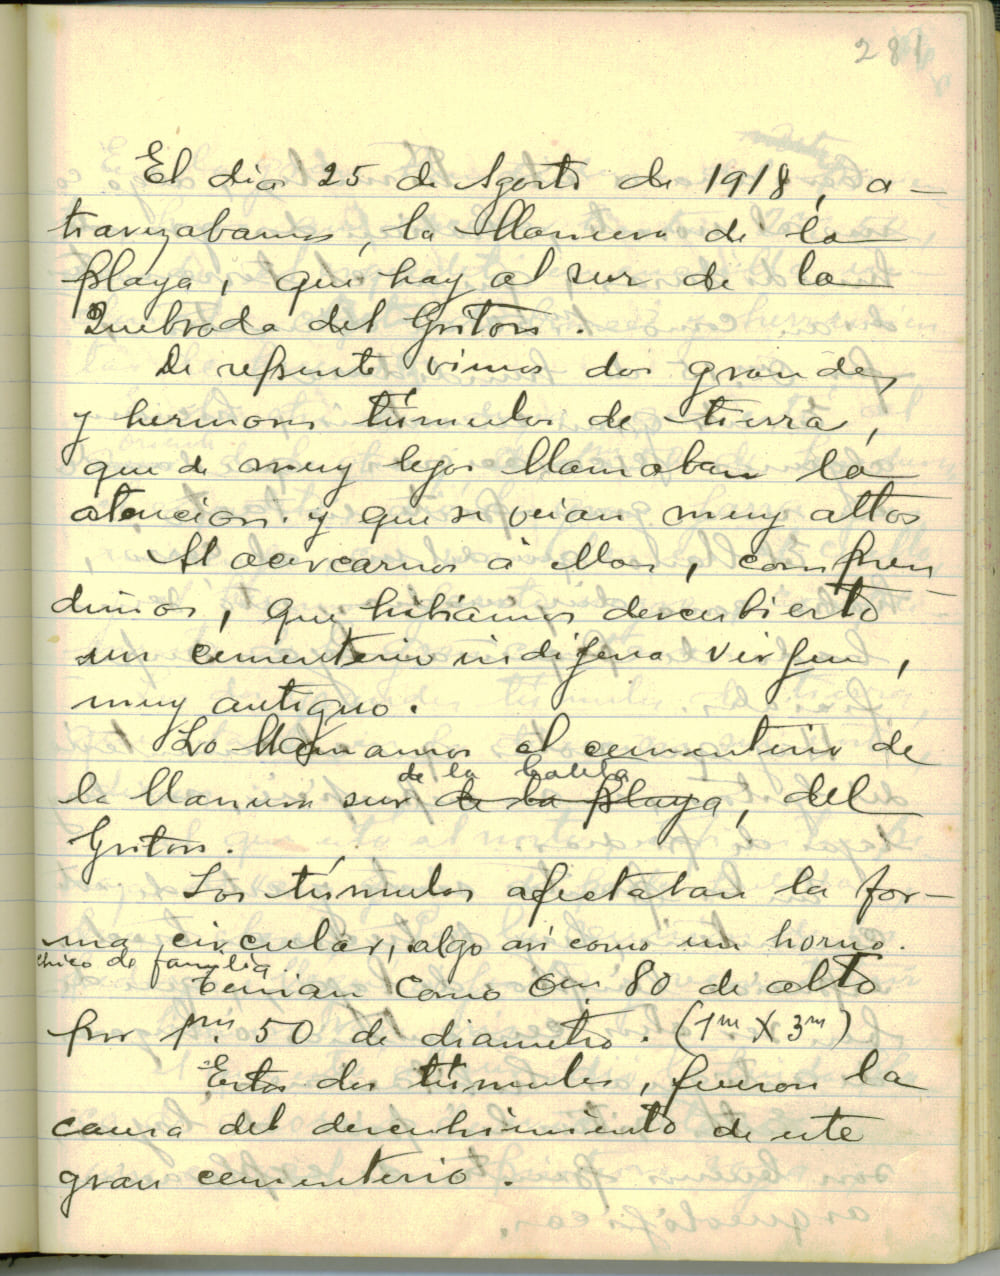 281
El dia 25 de Agosto de 1918, a-
travezabamos, la llanura de la
playa, que hay al sur de la
Quebrada del Griton.
De repente vimos dos grandes
y hermosos túmulos de tierra,
que de muy lejos llamaban la
atencion y que se veian muy altos
Al acercarnos a ellos, compren-
dimos, que habiamos descubierto
un cementerio indigena virgen,
muy antiguo.
Lo llamamos el cementerio de
de la caleta
la llanura sur de la playa, del
Griton.
Los túmulos afectaban la for-
ma circular, algo asi como un horno.
chico de familia
tenian como 0m 80 de alto
por 1m. 50 de diametro. (1m X 3m)
Estos dos túmulos, fueron la
causa del descubrimiento de este
gran cementerio.